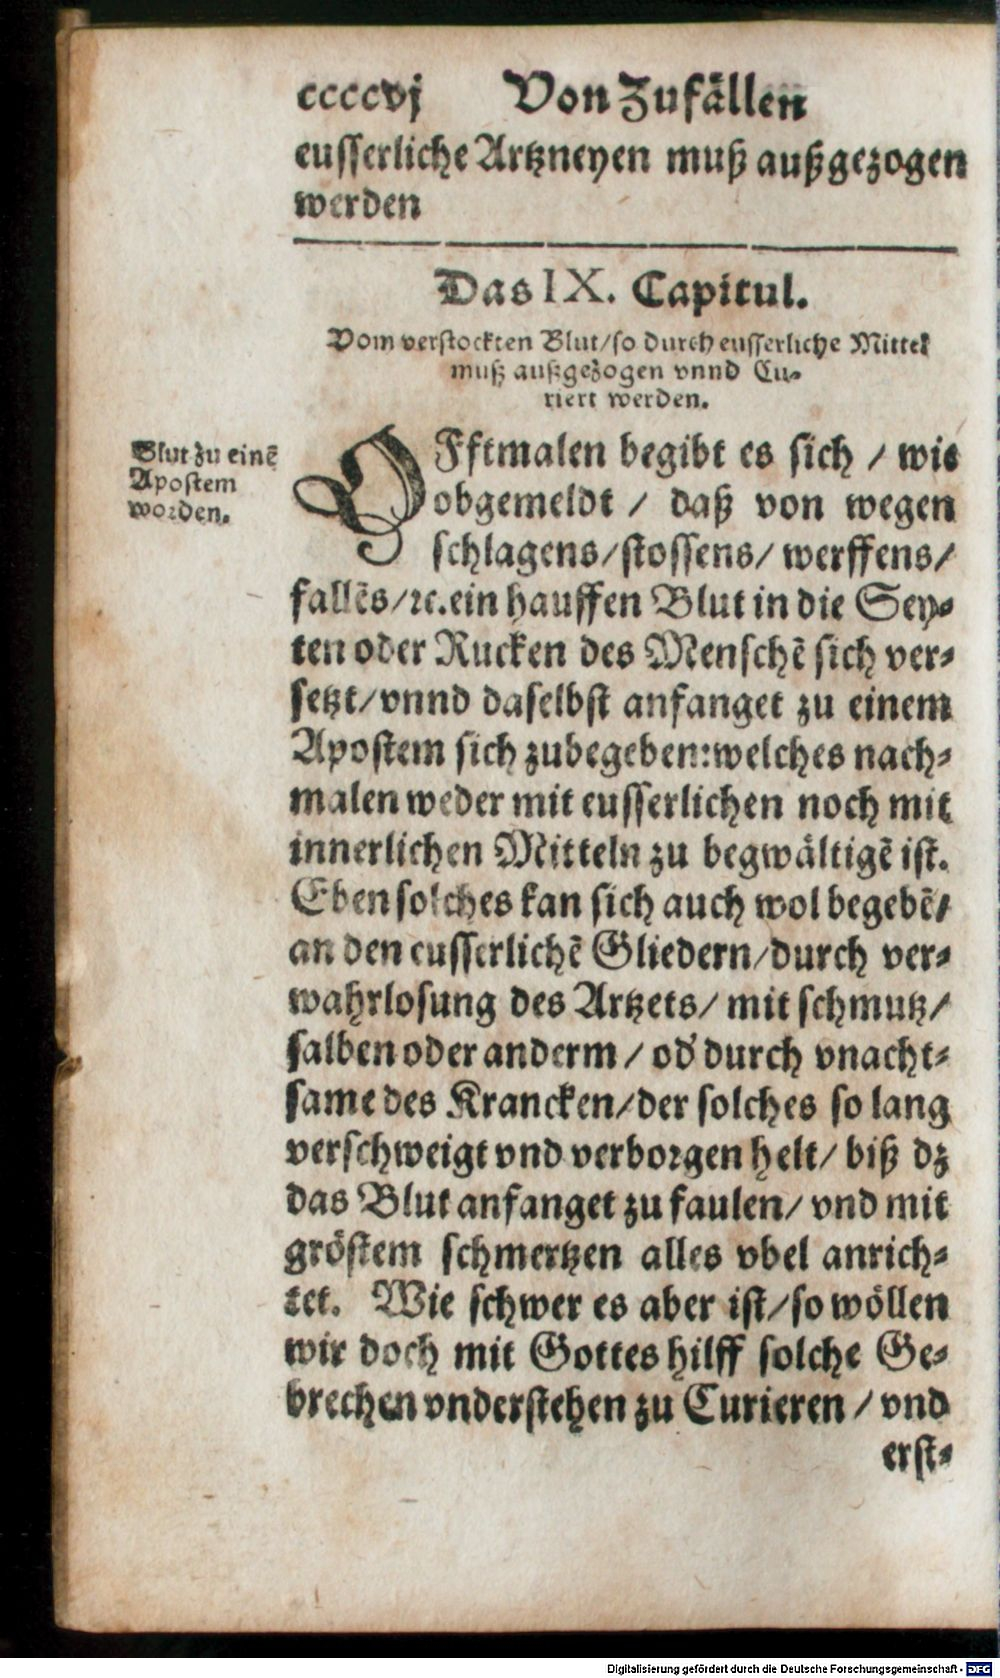 ccccvj Von Zufällen
eusserliche Artzneyen muß außgezogen
werden
Das IX. Capitul.
Vom verstockten Blut/so durch eusserliche Mittel
muß außgezogen vnnd Cu-
riert werden.
Blut zu einẽ
Apostem
worden.
OFftmalen begibt es sich / wie
obgemeldt / daß von wegen
schlagens/stossens/ werffens/
fallẽs/ꝛc.ein hauffen Blut in die Sey-
ten oder Rucken des Menschẽ sich ver-
setzt/vnnd daselbst anfanget zu einem
Apostem sich zubegeben:welches nach-
malen weder mit eusserlichen noch mit
innerlichen Mitteln zu begwältigẽ ist.
Eben solches kan sich auch wol begebẽ/
an den eusserlichẽ Gliedern/durch ver-
wahrlosung des Artzets/ mit schmutz/
salben oder anderm / od' durch vnacht-
same des Krancken/der solches so lang
verschweigt vnd verborgen helt/ biß dz
das Blut anfanget zu faulen/ vnd mit
gröstem schmertzen alles vbel anrich-
tet. Wie schwer es aber ist/so wöllen
wir doch mit Gottes hilff solche Ge-
brechen vnderstehen zu Curieren / vnd
erst-
Digitalisierung gefördert durch die Deutsche Forschungsgemeinschaft - DFG